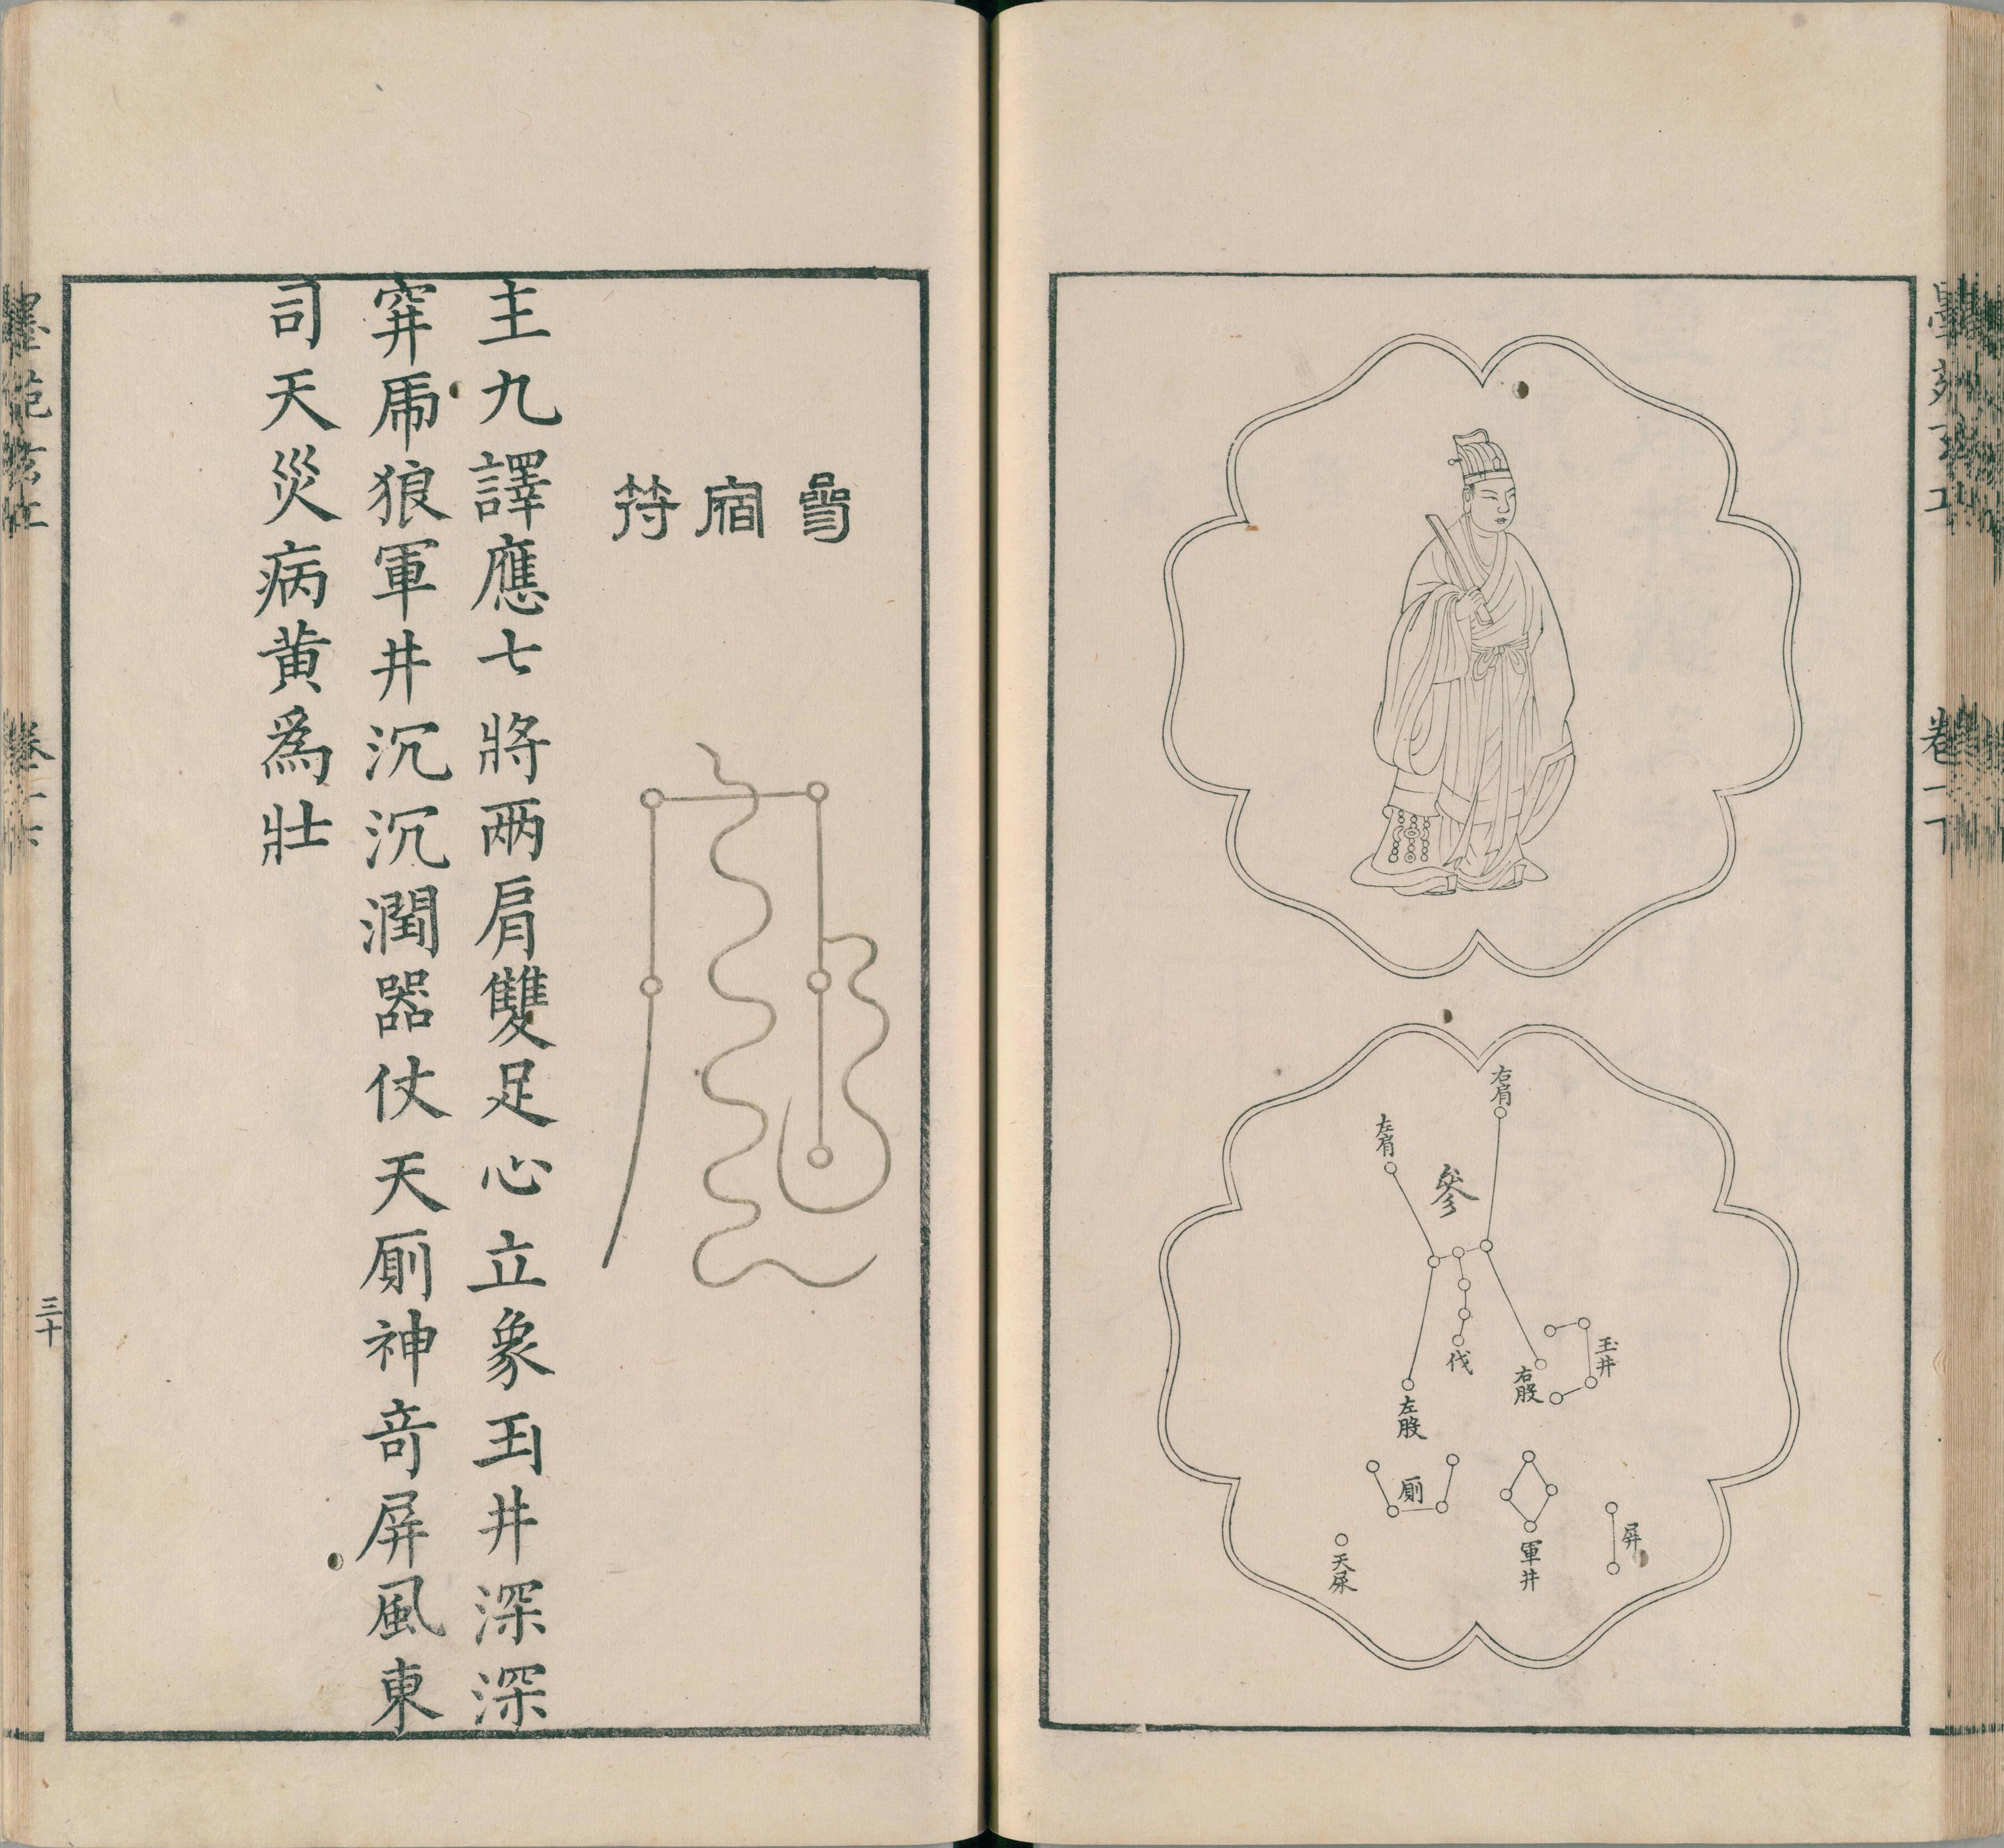 右肩
左肩
參
伐
右股
玉井
左股
厠
軍井
屏
天屎
參宿符
主九譯應七將两肩雙足心立象玉井深深
穽乕狼軍井沉沉潤器仗天厠神竒屏風東
司天災病黄爲壯
三十